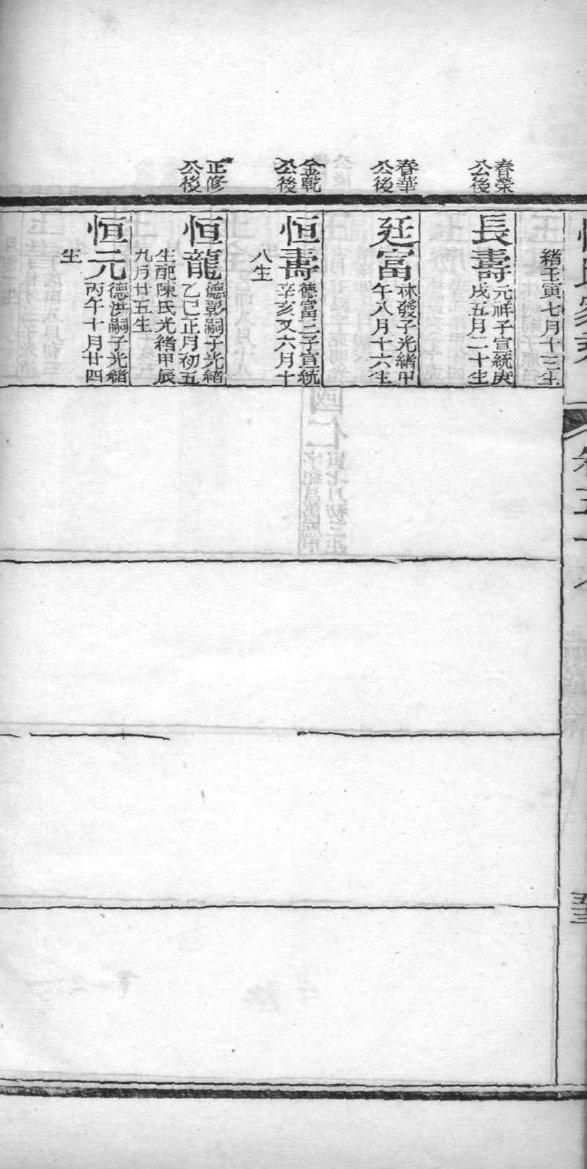 緒壬寅七月十三生
春榮
公後
長壽
元祥子宣統庚
戌五月二十生
春華
公後
延富
林發子光緒甲
午八月十六生
金乾
公後
恒壽
德富三子宣統
辛亥又六月十
八生
正修
公後
恒龍
德彰嗣子光緒
乙巳正月初五
生配陳氏光緒甲辰
九月廿五生
恒元
德洪嗣子光緒
丙午十月廿四
生